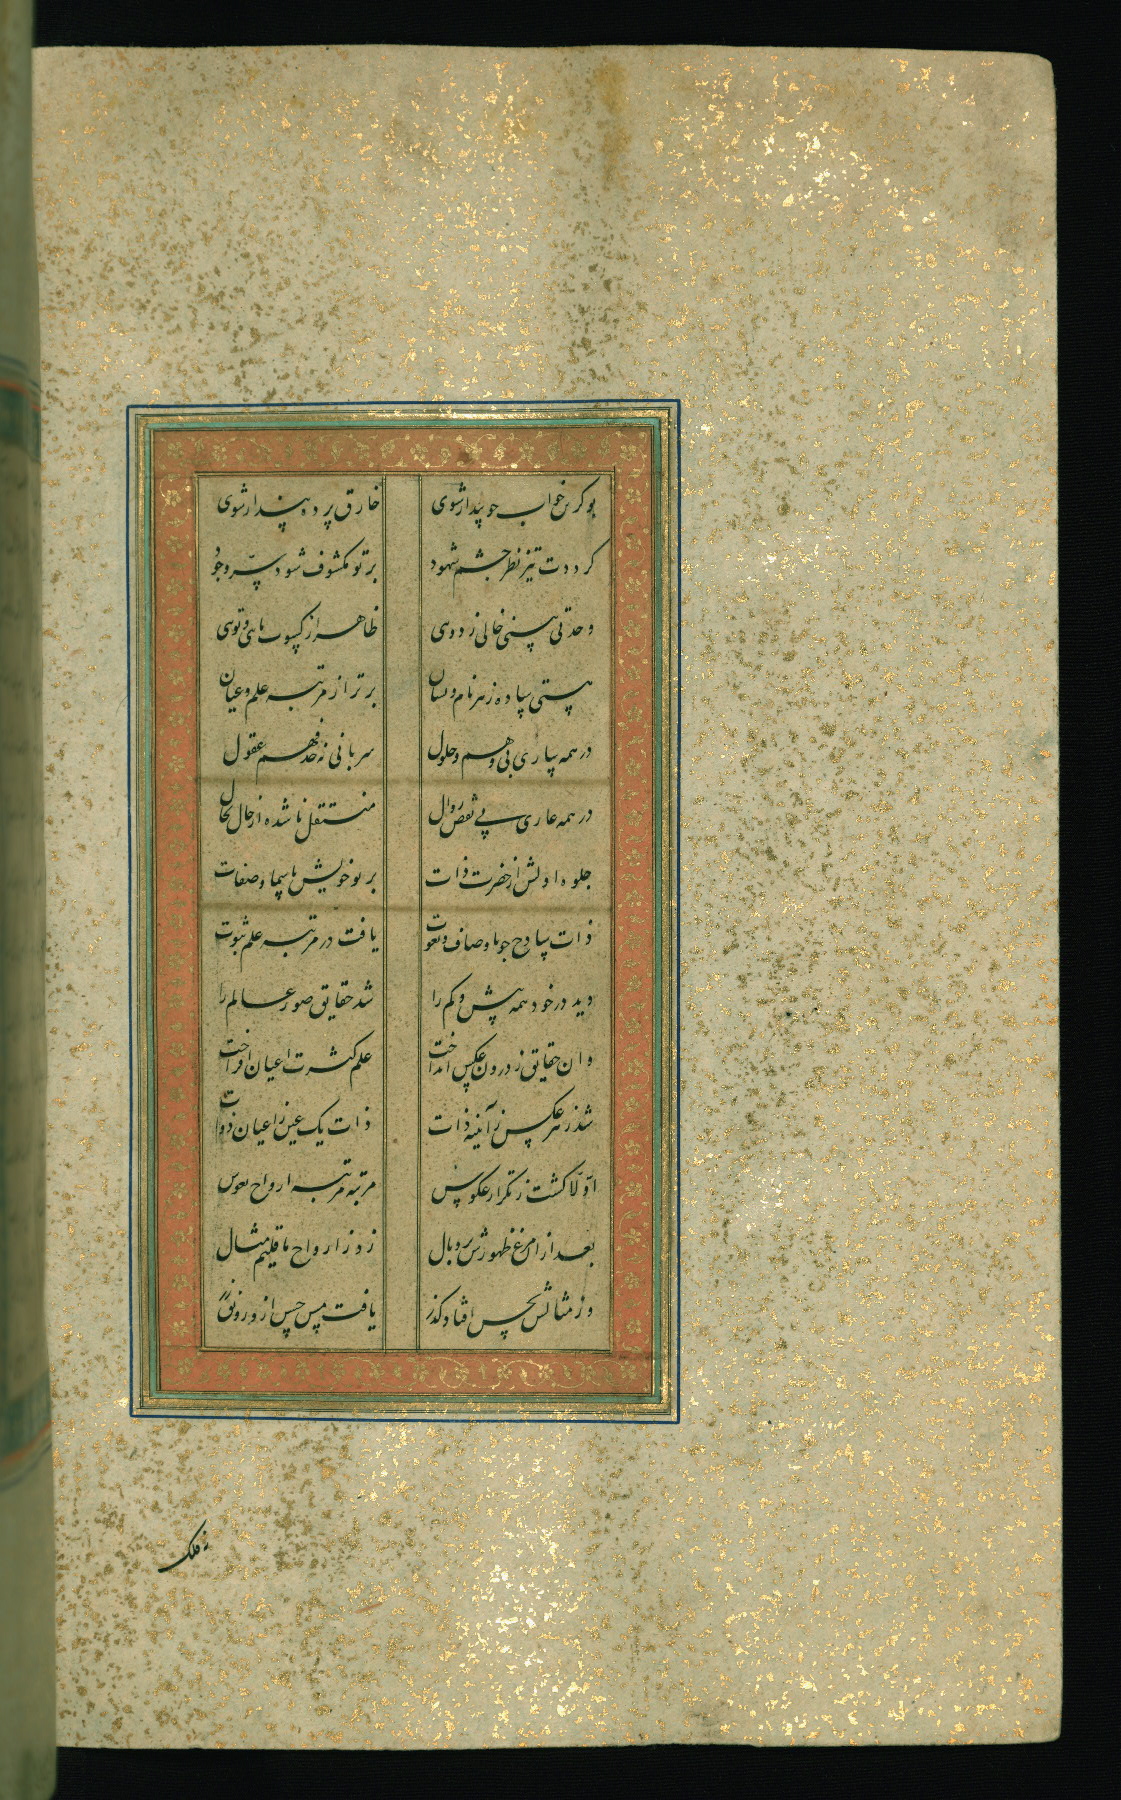 بو کزین خواب چو بیدار شوی خارق پرده پندار شوی
گرددت تیز نظر چشم شهود بر تو مکشوف شود سرّ وجود
وحدتی بینی خالی ز دوی ظاهر از کسوت مایی و توی
هستی ساده ز هر نام و نشان برتر از مرتبه علم و عیان
در همه ساری بی وهم و حلول سریانی نه حد فهم عقول
در همه عاری بی نقص زوال منتقل ناشده از حال بحال
جلوه اولش از حضرت ذات بر تو خویش باسما و صفات
ذات ساذج چو باوصاف و نعوت یافت در مرتبه علم ثبوت
دید در خود همه بیش و کم را شد حقایق صور عالم را
وان حقایق ز درون عکس انداخت علم کثرت اعیان افراخت
شد ز هر عکس ز آیینه ذات ذات یک عین ز اعیان ذوات
اولا گشت ز تکرار عکوس مرتبه مرتبه ارواح نفوس
بعد ازان مرغ ظهورش پر و بال زد ز ارواح باقلیم مثال
وز مثالش بحس افتاد گذر یافت پس حس ازو رونق
ز فلک